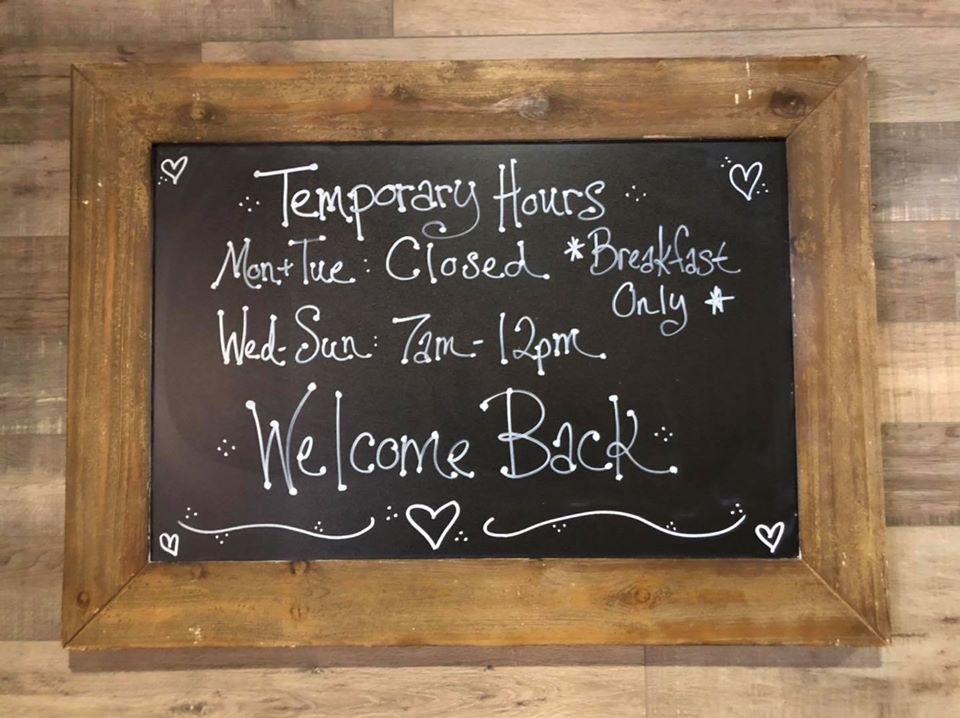 Temporary Hours
Mon+Tue: Closed *Breakfast
Only *
Wed-Sun: 7am-12pm
Welcome Back